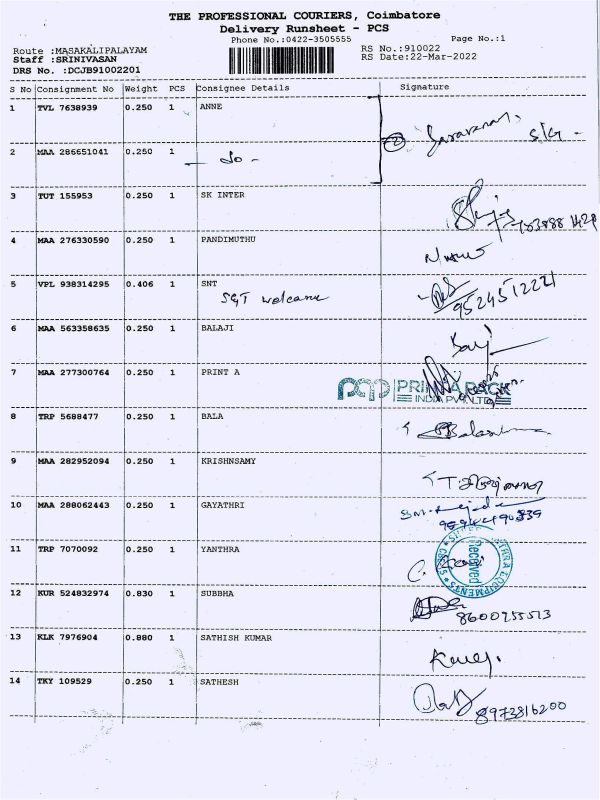 THE PROFESSIONAL COURIERS, Coimbatore
Delivery Runsheet - PCS
Phone No.:0422-3505555
Page No.:1
Route :MASAKALIPALAYAM
RS No.:910022
Staff :SRINIVASAN
RS Date:22-Mar-2022
DRS No. :DCJB91002201
S No Consignment No Weight PCS Consignee Details Signature
1 TVL 7638939 0.250 1 ANNE
2 MAA 286651041 0.250 1 - do -
3 TUT 155953 0.250 1 SK INTER
4 MAA 276330590 0.250 1 PANDIMUTHU
5 VPL 938314295 0.406 1 SNT
SGT welcome
9524512221
6 MAA 563358635 0.250 1 BALAJI
7 MAA 277300764 0.250 1 PRINT A
PACK
INDIA PVT LTD
8 TRP 5688477 0.250 1 BALA
9 MAA 282952094 0.250 1 KRISHNSAMY
10 MAA 288062443 0.250 1 GAYATHRI
11 TRP 7070092 0.250 1 YANTHRA
Received
12 KUR 524832974 0.830 1 SUBBHA
8600955513
13 KLK 7976904 0.880 1 SATHISH KUMAR
14 TKY 109529 0.250 1 SATHESH
8973816200